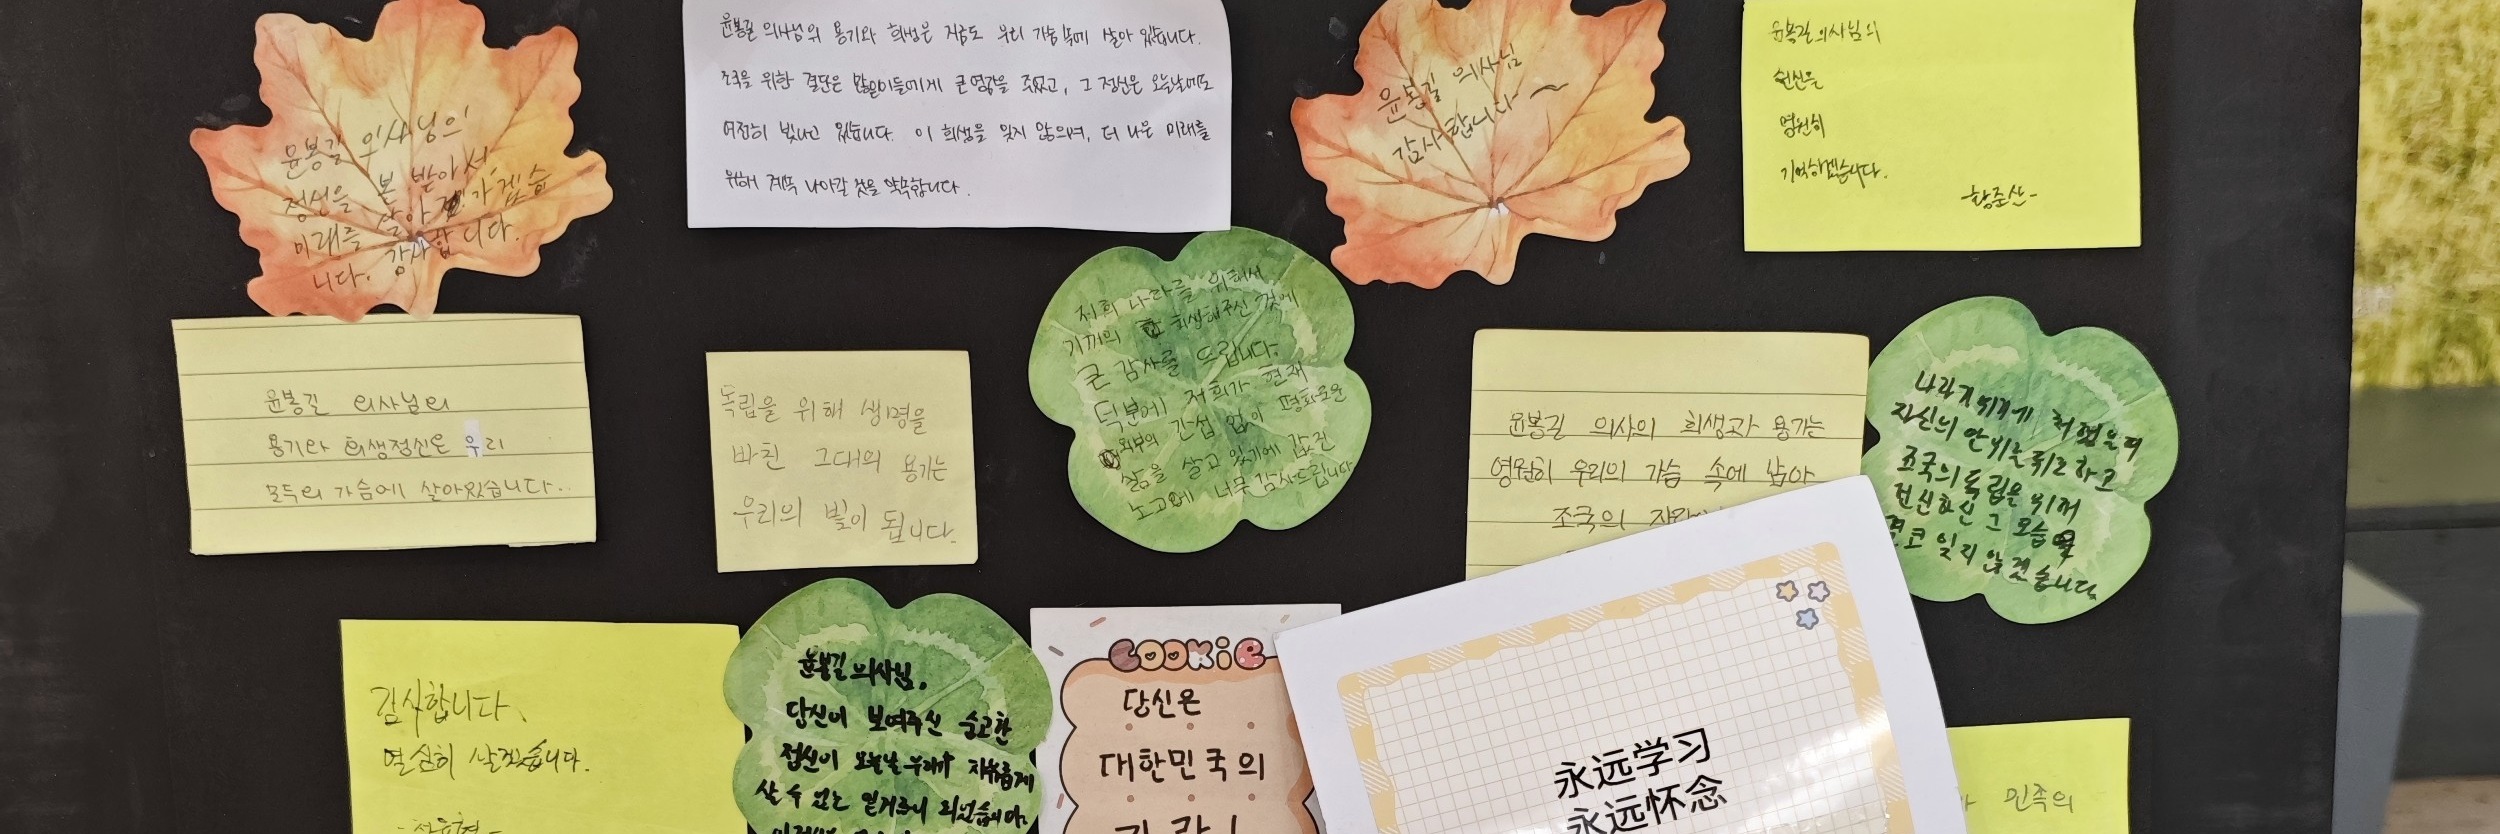 윤봉길 의사님의
정신을 본 받아서,
미래를 살아가겠습
니다. 감사합니다.
윤봉길 의사님의 용기와 희생은 지금도 우리 가슴속에 살아 있습니다.
조국을 위한 결단은 많은이들에게 큰 영감을 주었고, 그 정신은 오늘날에도
여전히 빛나고 있습니다. 이 희생을 잊지 않으며, 더 나은 미래를
위해 계속 나아갈 것을 약속합니다.
윤봉길 의사님
감사합니다~
윤봉길의사님의
헌신을
영원히
기억하겠습니다.
-황준산-
윤봉길 의사님의
용기와 희생정신은 우리
모두의 가슴에 살아있습니다..
독립을 위해 생명을
바친 그대의 용기는
우리의 빛이 됩니다.
저희 나라를 위해서
기꺼의 희생해주신 것에
큰 감사를 드립니다.
덕분에 저희가 현재
외부의 간섭 없이 평화로운
삶을 살고 있기에 값진
노고에 너무 감사드립니다
윤봉길 의사의 희생과 용기는
영원히 우리의 가슴 속에 남아
조국의
나라지키기에 처했을때
자신의 안위는 뒤로 하고
조국의 독립을 위해
헌신하신 그 모습
결코 잊지 않겠습니다.
감사합니다.
열심히 살겠습니다.
윤봉길 의사님,
당신이 보여주신 숭고한
정신이 오늘날 우리가 자유롭게
살 수 있는 밑거름이 되었습니다.
COOKIE
당신은
대한민국의
永远学习
永远怀念
민족의